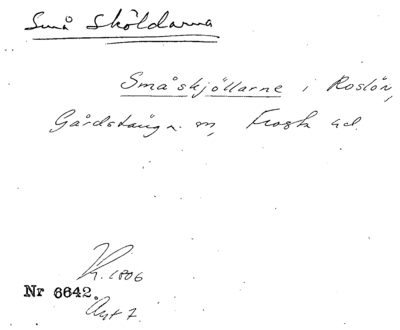 Små Sköldarna
Småskjöllarne i Roslör,
Gårdstånga sn, Frosta hd.
K. 1806
Nr 6642.
Akt 7.